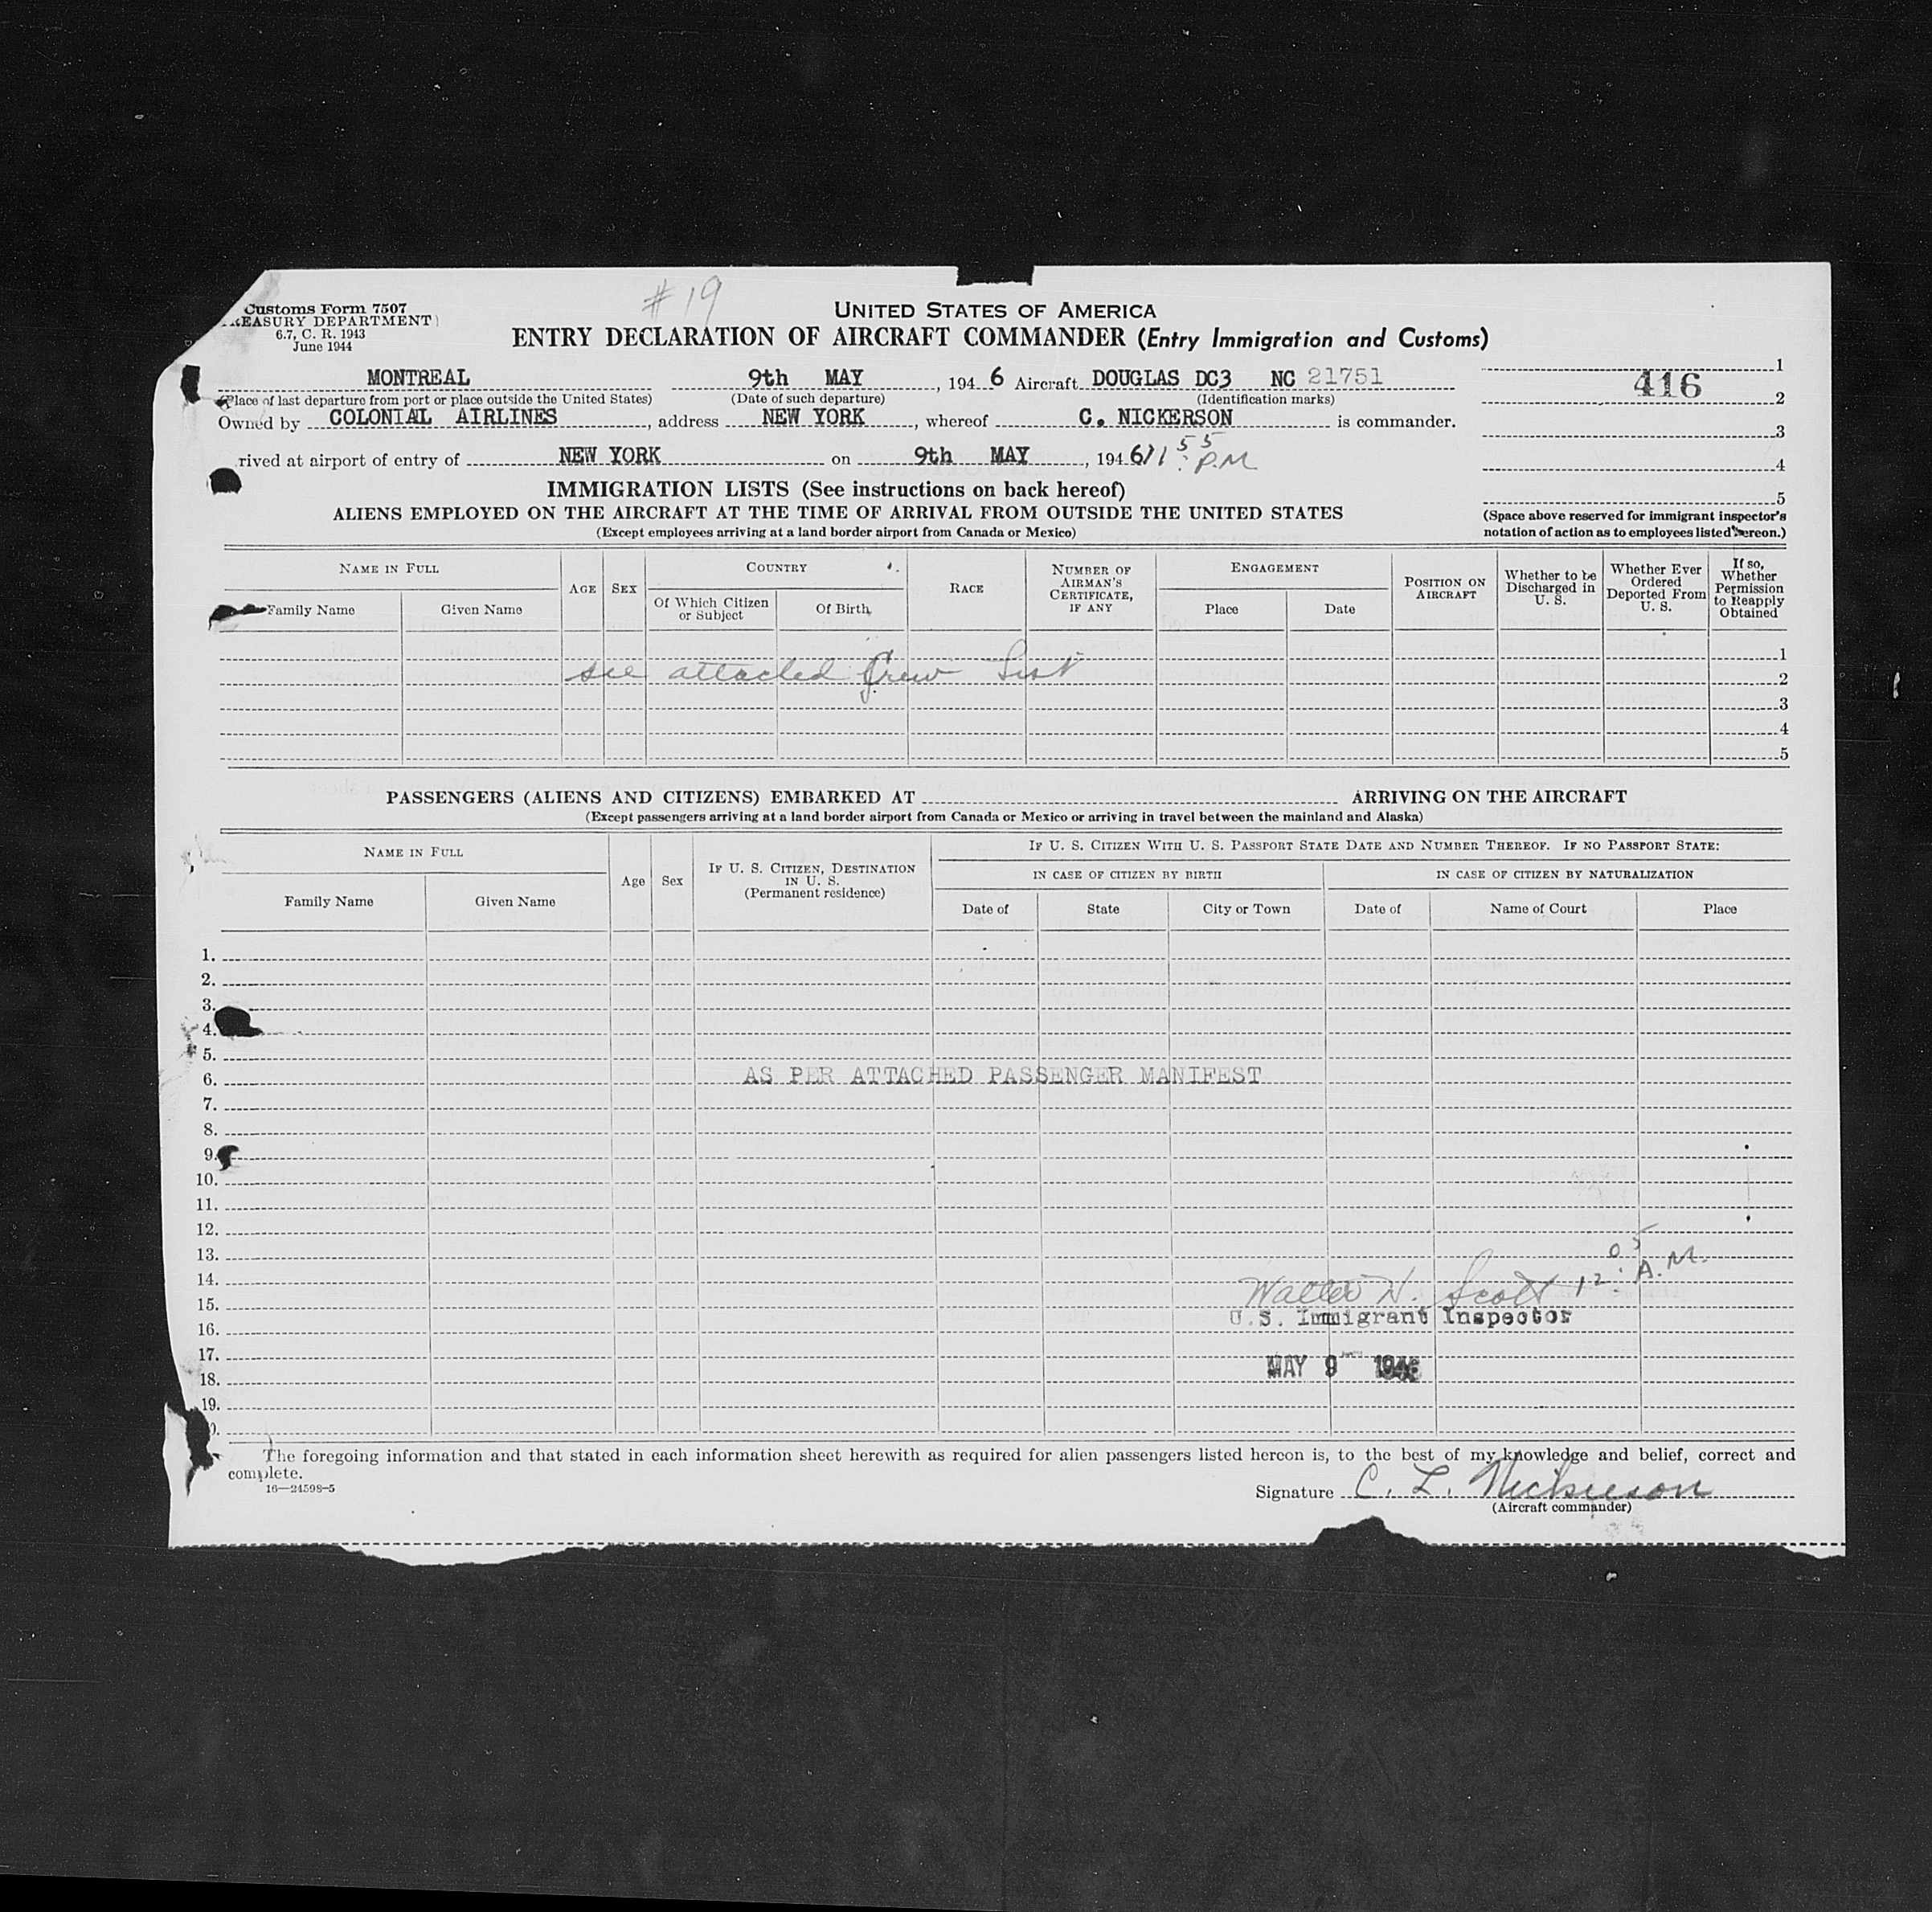 #19
Customs Form 7507
TREASURY DEPARTMENT
6.7, C. R. 1943
June 1944
UNITED STATES OF AMERICA
ENTRY DECLARATION OF AIRCRAFT COMMANDER (Entry Immigration and Customs)
MONTREAL 9th MAY, 1946 Aircraft DOUGLAS DC3 NC 21751
(Place of last departure from port or place outside the United States) (Date of such departure) (Identification marks)
Owned by COLONIAL AIRLINES, address NEW YORK, whereof C. NICKERSON is commander.
rived at airport of entry of NEW YORK on 9th MAY, 1946 / 11:55 P.M
1
416
2
3
4
5
(Space above reserved for immigrant inspector's notation of action as to employees listed hereon.)
IMMIGRATION LISTS (See instructions on back hereof)
ALIENS EMPLOYED ON THE AIRCRAFT AT THE TIME OF ARRIVAL FROM OUTSIDE THE UNITED STATES
(Except employees arriving at a land border airport from Canada or Mexico)
NAME IN FULL
Family Name Given Name
AGE SEX
COUNTRY
Of Which Citizen or Subject Of Birth
RACE
NUMBER OF AIRMAN'S CERTIFICATE, IF ANY
ENGAGEMENT
Place Date
POSITION ON AIRCRAFT
Whether to be Discharged in U. S.
Whether Ever Ordered Deported From U. S.
If so, Whether Permission to Reapply Obtained
1
see attached Crew List
2
3
4
5
PASSENGERS (ALIENS AND CITIZENS) EMBARKED AT ARRIVING ON THE AIRCRAFT
(Except passengers arriving at a land border airport from Canada or Mexico or arriving in travel between the mainland and Alaska)
NAME IN FULL
Family Name Given Name
Age Sex
IF U. S. CITIZEN, DESTINATION IN U. S. (Permanent residence)
IF U. S. CITIZEN WITH U. S. PASSPORT STATE DATE AND NUMBER THEREOF. IF NO PASSPORT STATE:
IN CASE OF CITIZEN BY BIRTH IN CASE OF CITIZEN BY NATURALIZATION
Date of State City or Town Date of Name of Court Place
1.
2.
3.
4.
5.
6. AS PER ATTACHED PASSENGER MANIFEST
7.
8.
9.
10.
11.
12.
13.
14.
15. Walter H. Scott 12:05 A.M.
U.S. Immigrant Inspector
16.
17.
MAY 9 1946
18.
19.
0.
The foregoing information and that stated in each information sheet herewith as required for alien passengers listed hereon is, to the best of my knowledge and belief, correct and
complete.
16—24598-5
Signature C. L. Nickerson
(Aircraft commander)